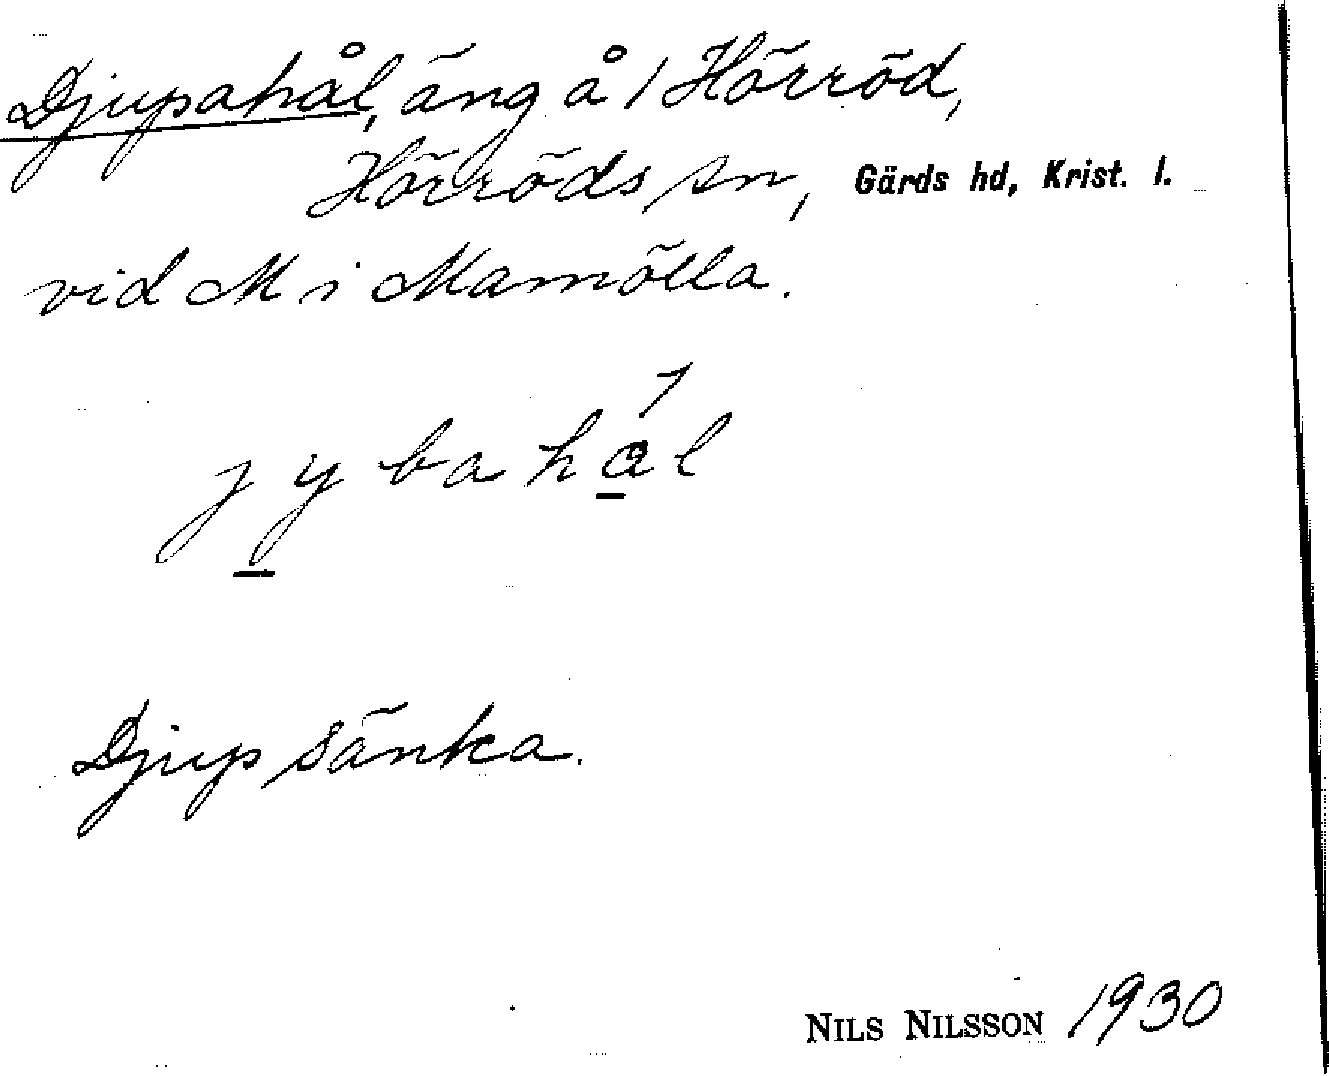 Djupahål, äng å 1 Hörröd,
Hörröds sn, Gärds hd, Krist. l.
vid M i Mamölla.
jybahål
Djup sänka.
NILS NILSSON 1930